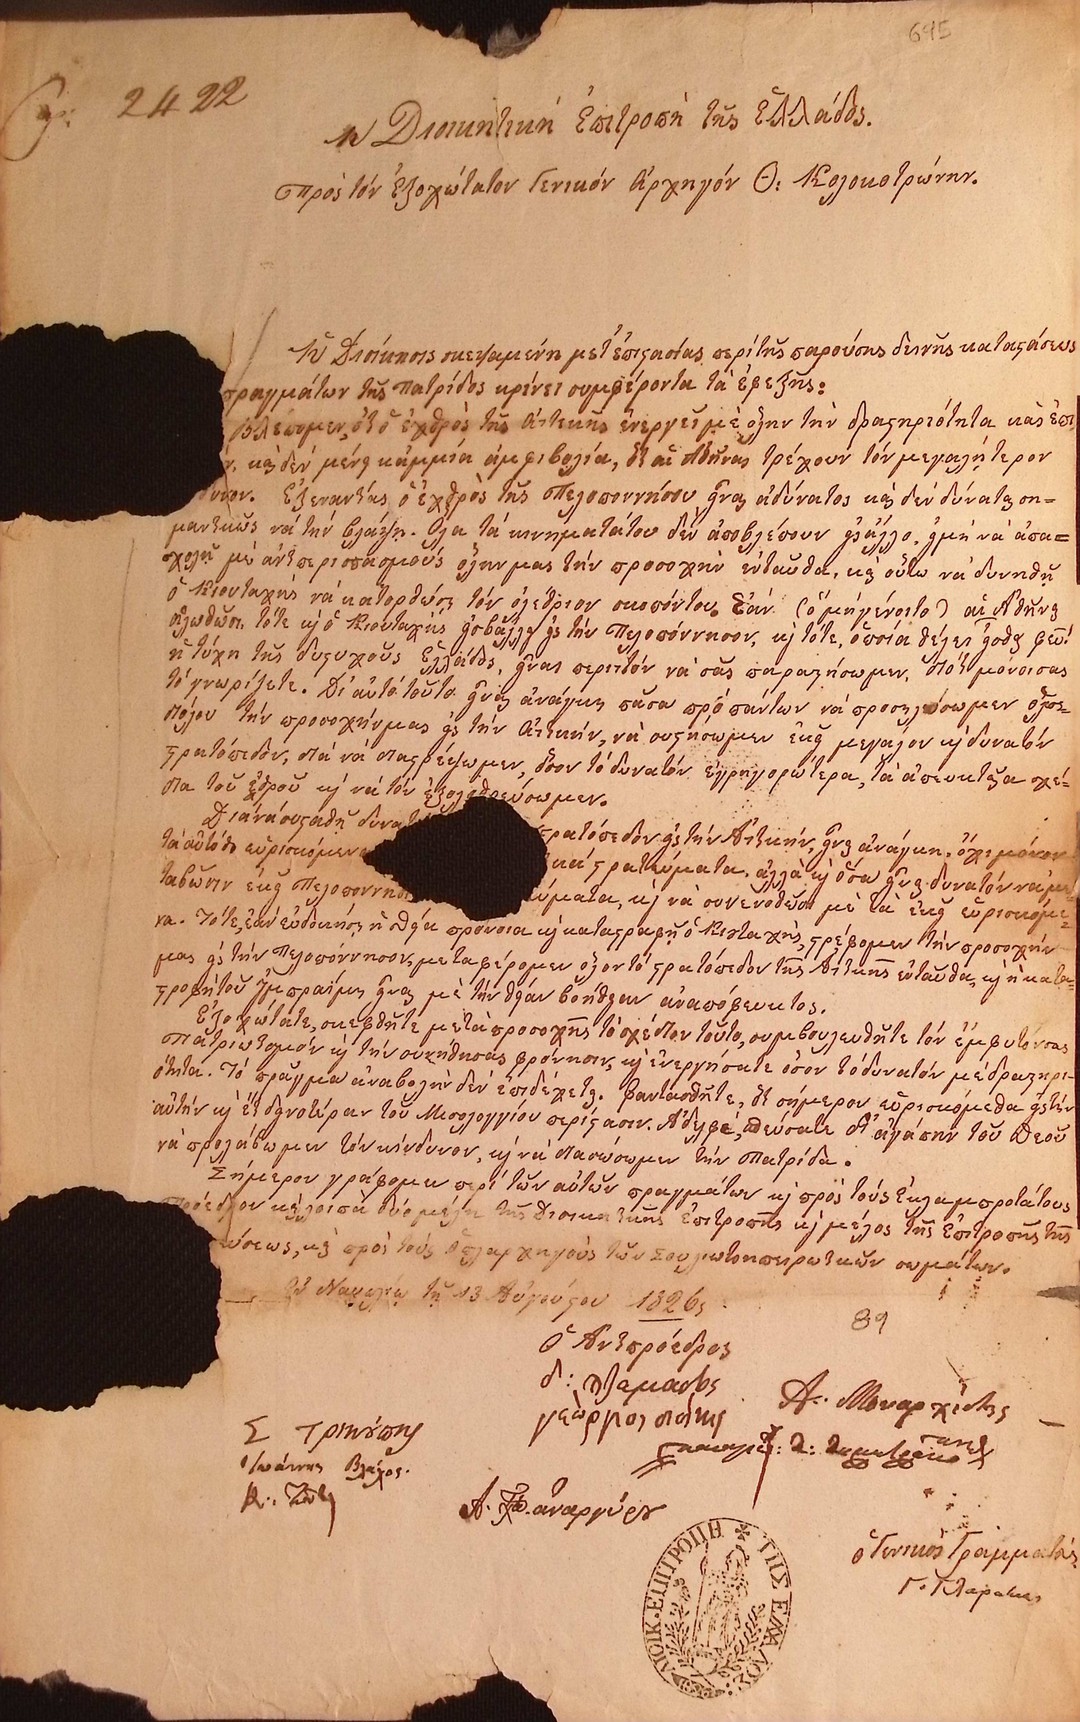 695
2422
Ἡ Διοικητική Ἐπιτροπή τῆς Ἑλλάδος.
Πρός τόν Ἐξοχώτατον Γενικόν Ἀρχηγόν Θ: Κολοκοτρώνην.
Ἡ Διοίκησις σκεψαμένη μετ' ἐπιστασίας περί τῆς παρούσης δεινῆς καταστάσεως
πραγμάτων τῆς Πατρίδος κρίνει συμφέροντα τά ἐφεξῆς:
Βλέπομεν, ὅτι ὁ ἐχθρός τῆς Ἀττικῆς ἐνεργεῖ μέ ὅλην τήν δραστηριότητα καί ἐπι
καί δέν μένει κἀμμία ἀμφιβολία, ὅτι αἱ Ἀθῆναι τρέχουν τόν μεγαλήτερον
δυνον. Ἐξεναντίας ὁ ἐχθρός τῆς Πελοποννήσου εἶναι ἀδύνατος καί δέν δύναται ση-
μαντικῶς νά τήν βλάψῃ. Ὅλα τά κινήματά του δέν ἀποβλέπουν εἰς ἄλλο, εἰμή νά ἀπα-
σχολῇ μέ ἀντιπερισπασμούς ὅλην μας τήν προσοχήν ἐνταῦθα, καί οὕτω νά δυνηθῇ
ὁ Κιουταχής νά κατορθώσῃ τόν ὀλέθριον σκοπόν του. Ἐάν (ὅ μή γένοιτο) αἱ Ἀθῆναι
ἁλωθῶσι, τότε καί ὁ Κιουταχής εἰσβάλλει εἰς τήν Πελοπόννησον, καί τότε, ὁποία θέλει
ἡ τύχη τῆς δυστυχοῦς Ἑλλάδος, εἶναι περιττόν νά σᾶς παραστήσωμεν, διότι μόνοι σας
τό γνωρίζετε. Δι' αὐτό τοῦτο εἶναι ἀνάγκη πᾶσα πρό πάντων νά προσηλώσωμεν ὅλως
διόλου τήν προσοχήν μας εἰς τήν Ἀττικήν, νά συστήσωμεν ἐκεῖ μεγάλον καί δυνατόν
στρατόπεδον, διά νά διαστρέψωμεν, ὅσον τό δυνατόν ἐγρηγορώτερα, τά ἀπευκταῖα σχέ-
δια τοῦ ἐχθροῦ καί νά τόν ἐξολοθρεύσωμεν.
Διά νά συσταθῇ δυνατ στρατόπεδον εἰς τήν Ἀττικήν, εἶναι ἀνάγκη, ὄχι μόνον
τά αὐτόθι εὑρισκόμενα κά στρατεύματα, ἀλλά καί ὅσα εἶναι δυνατόν νά με
ταβῶσιν ἐκ Πελοποννήσ εύματα, καί νά συνενωθῶσι μέ τά ἐκεῖ εὑρισκόμε-
να. Τότε, ἐάν εὐδοκήσῃ ἡ θεία πρόνοια καί καταστραφῇ ὁ Κιουταχής, στρέφομεν τήν προσοχήν
μας εἰς τήν Πελοπόννησον, μεταφέρομεν ὅλον τό στρατόπεδον τῆς Ἀττικῆς ἐνταῦθα, καί ἡ κατα-
στροφή τοῦ Ἰμπραΐμη εἶναι μέ τήν θείαν βοήθειαν ἀναπόφευκτος.
Ἐξοχώτατε, σκεφθῆτε μετά προσοχῆς τό σχέδιον τοῦτο, συμβουλευθῆτε τόν ἔμφυτόν σας
Πατριωτισμόν καί τήν συνήθη σας φρόνησιν, καί ἐνεργήσατε ὅσον τό δυνατόν μέ δραστηρι-
ότητα. Τό πρᾶγμα ἀναβολήν δέν ἐπιδέχεται. Φαντασθῆτε, ὅτι σήμερον εὑρισκόμεθα εἰς τήν
αὐτήν καί ἔτι δεινοτέραν τοῦ Μεσολογγίου περίστασιν. Ἀδελφέ, σπεύσατε δι' ἀγάπην τοῦ Θεοῦ
νά προλάβωμεν τόν κίνδυνον, καί νά διασώσωμεν τήν Πατρίδα.
Σήμερον γράφομεν περί τῶν αὐτῶν πραγμάτων καί πρός τούς Ἐκλαμπροτάτους
Πρόεδρον καί λοιπά δύο μέλη τῆς Διοικητικῆς Ἐπιτροπῆς καί μέλος τῆς Ἐπιτροπῆς τῆς
εύσεως, καί πρός τούς ὁπλαρχηγούς τῶν Σουλιωτοηπειρωτικῶν σωμάτων.
Ἐν Ναυπλίῳ τῇ 13 Αὐγούστου 1826
89
Ὁ Ἀντιπρόεδρος
Δ: Τζαμαδός
Α. Μοναρχίδης
γεώργιος σισίνης
Σ Τρικούπης
Ἰωάννης Βλάχος.
Κ. Ζώτης
Α. Χα. ἀναργύρου
ὁ Γενικός Γραμματεύς
Γ. Γλαράκης
ΔΙΟΙΚ. ΕΠΙΤΡΟΠΗ ΤΗΣ ΕΛΛΑΔΟΣ